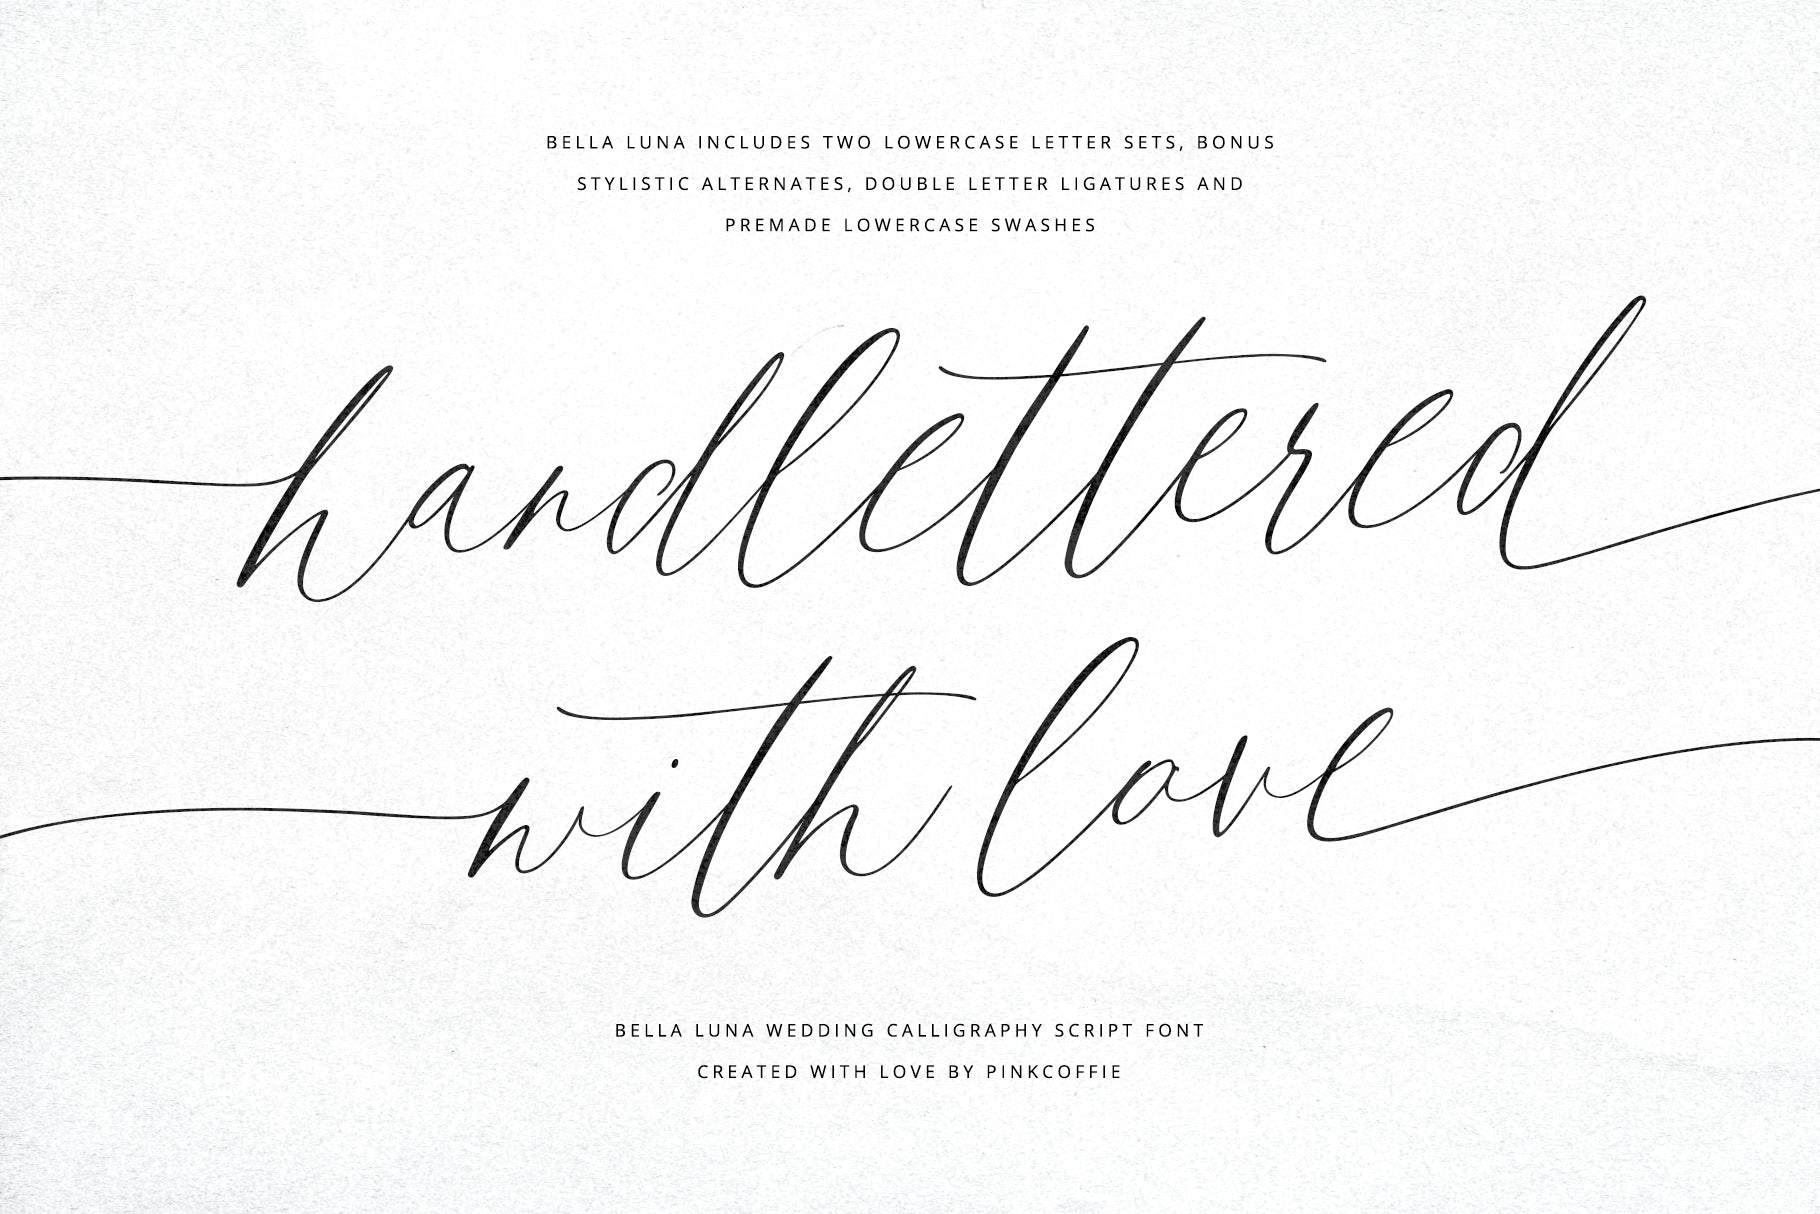 BELLA LUNA INCLUDES TWO LOWERCASE LETTER SETS, BONUS
STYLISTIC ALTERNATES, DOUBLE LETTER LIGATURES AND
PREMADE LOWERCASE SWASHES
handlettered
with love
BELLA LUNA WEDDING CALLIGRAPHY SCRIPT FONT
CREATED WITH LOVE BY PINKCOFFIE